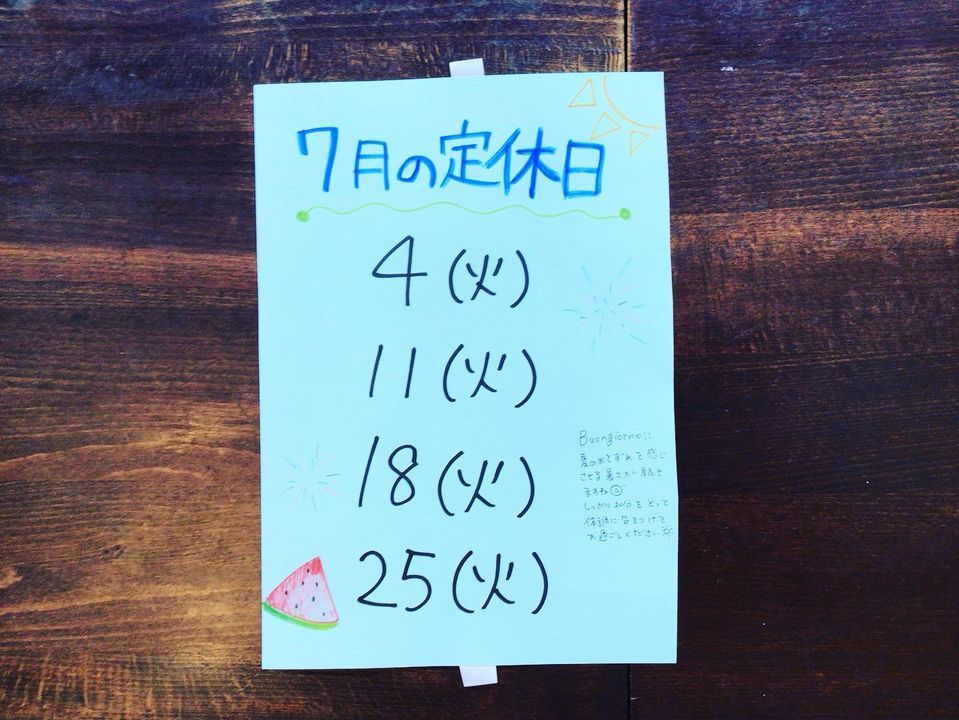 7月の定休日
4(火)
11(火)
18(火)
25(火)
Buongiorno!!
夏のおとずれを感じ
させる暑さが続き
ますね
しっかり水分をとって
体調に気をつけて
お過ごしください